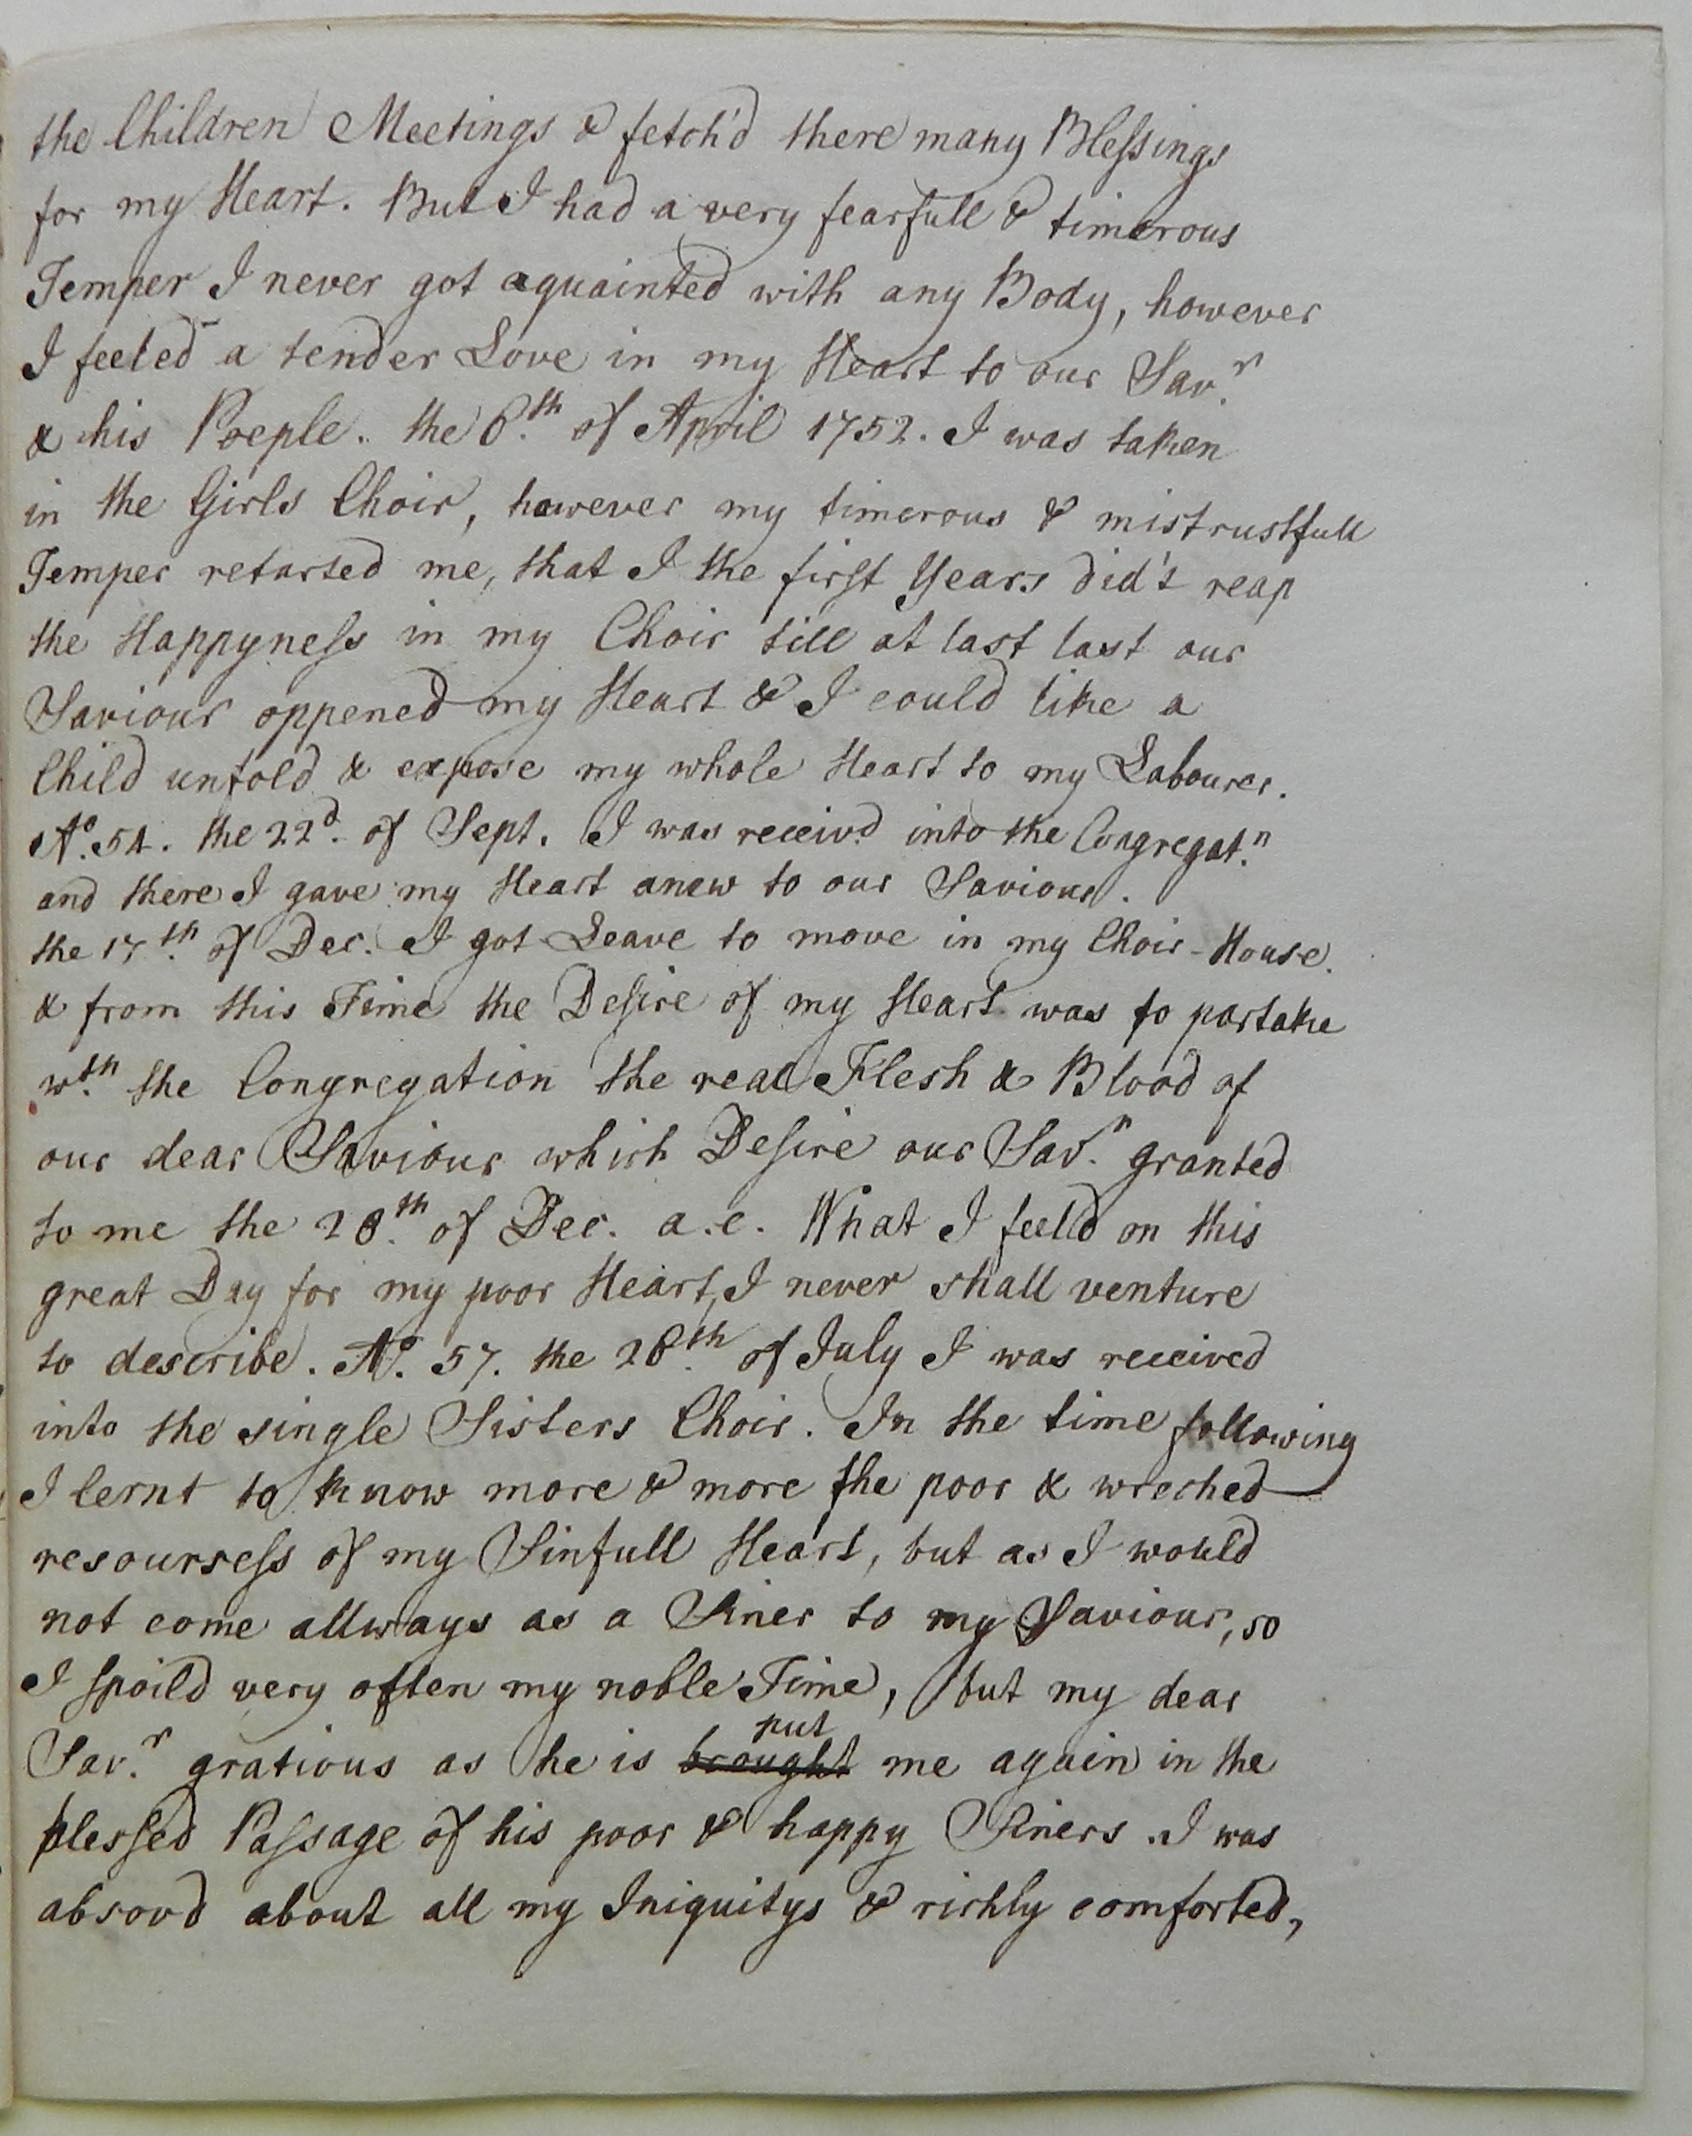 the Children Meetings & fetch'd there many Blessings
for my Heart. But I had a very fearfull & timerous
Temper I never got aquainted with any Body, however
I feeled a tender Love in my Heart to our Sav.r
& his Poeple. the 6.th of April 1752. I was taken
in the Girls Choir, however my timerous & mistrustfull
Temper retarted me, that I the first Years did't reap
the Happyness in my Choir till at last last our
Saviour oppened my Heart & I could like a
Child unfold & expose my whole Heart to my Labourer.
Ao. 54. the 22d. of Sept. I was receivd into the Congregat.n
and there I gave my Heart anew to our Saviour.
the 17.th of Dec. I got Leave to move in my Choir-House.
& from this Time the Desire of my Heart was to partake
w.th the Congregation the real Flesh & Blood of
our dear Saviour which Desire our Sav.r granted
to me the 28.th of Dec. a.e. What I feeld on this
great Day for my poor Heart, I never shall venture
to describe. Ao. 57. the 28.th of July I was received
into the single Sisters Choir. In the time following
I lernt to know more & more the poor & wreched
resoursess of my Sinfull Heart, but as I would
not come allways as a Siner to my Saviour, so
I spoild very often my noble Time, but my dear
Sav.r gratious as he is brought put me again in the
plessed Passage of his poor & happy Siners. I was
absovd about all my Iniquitys & richly comforted,